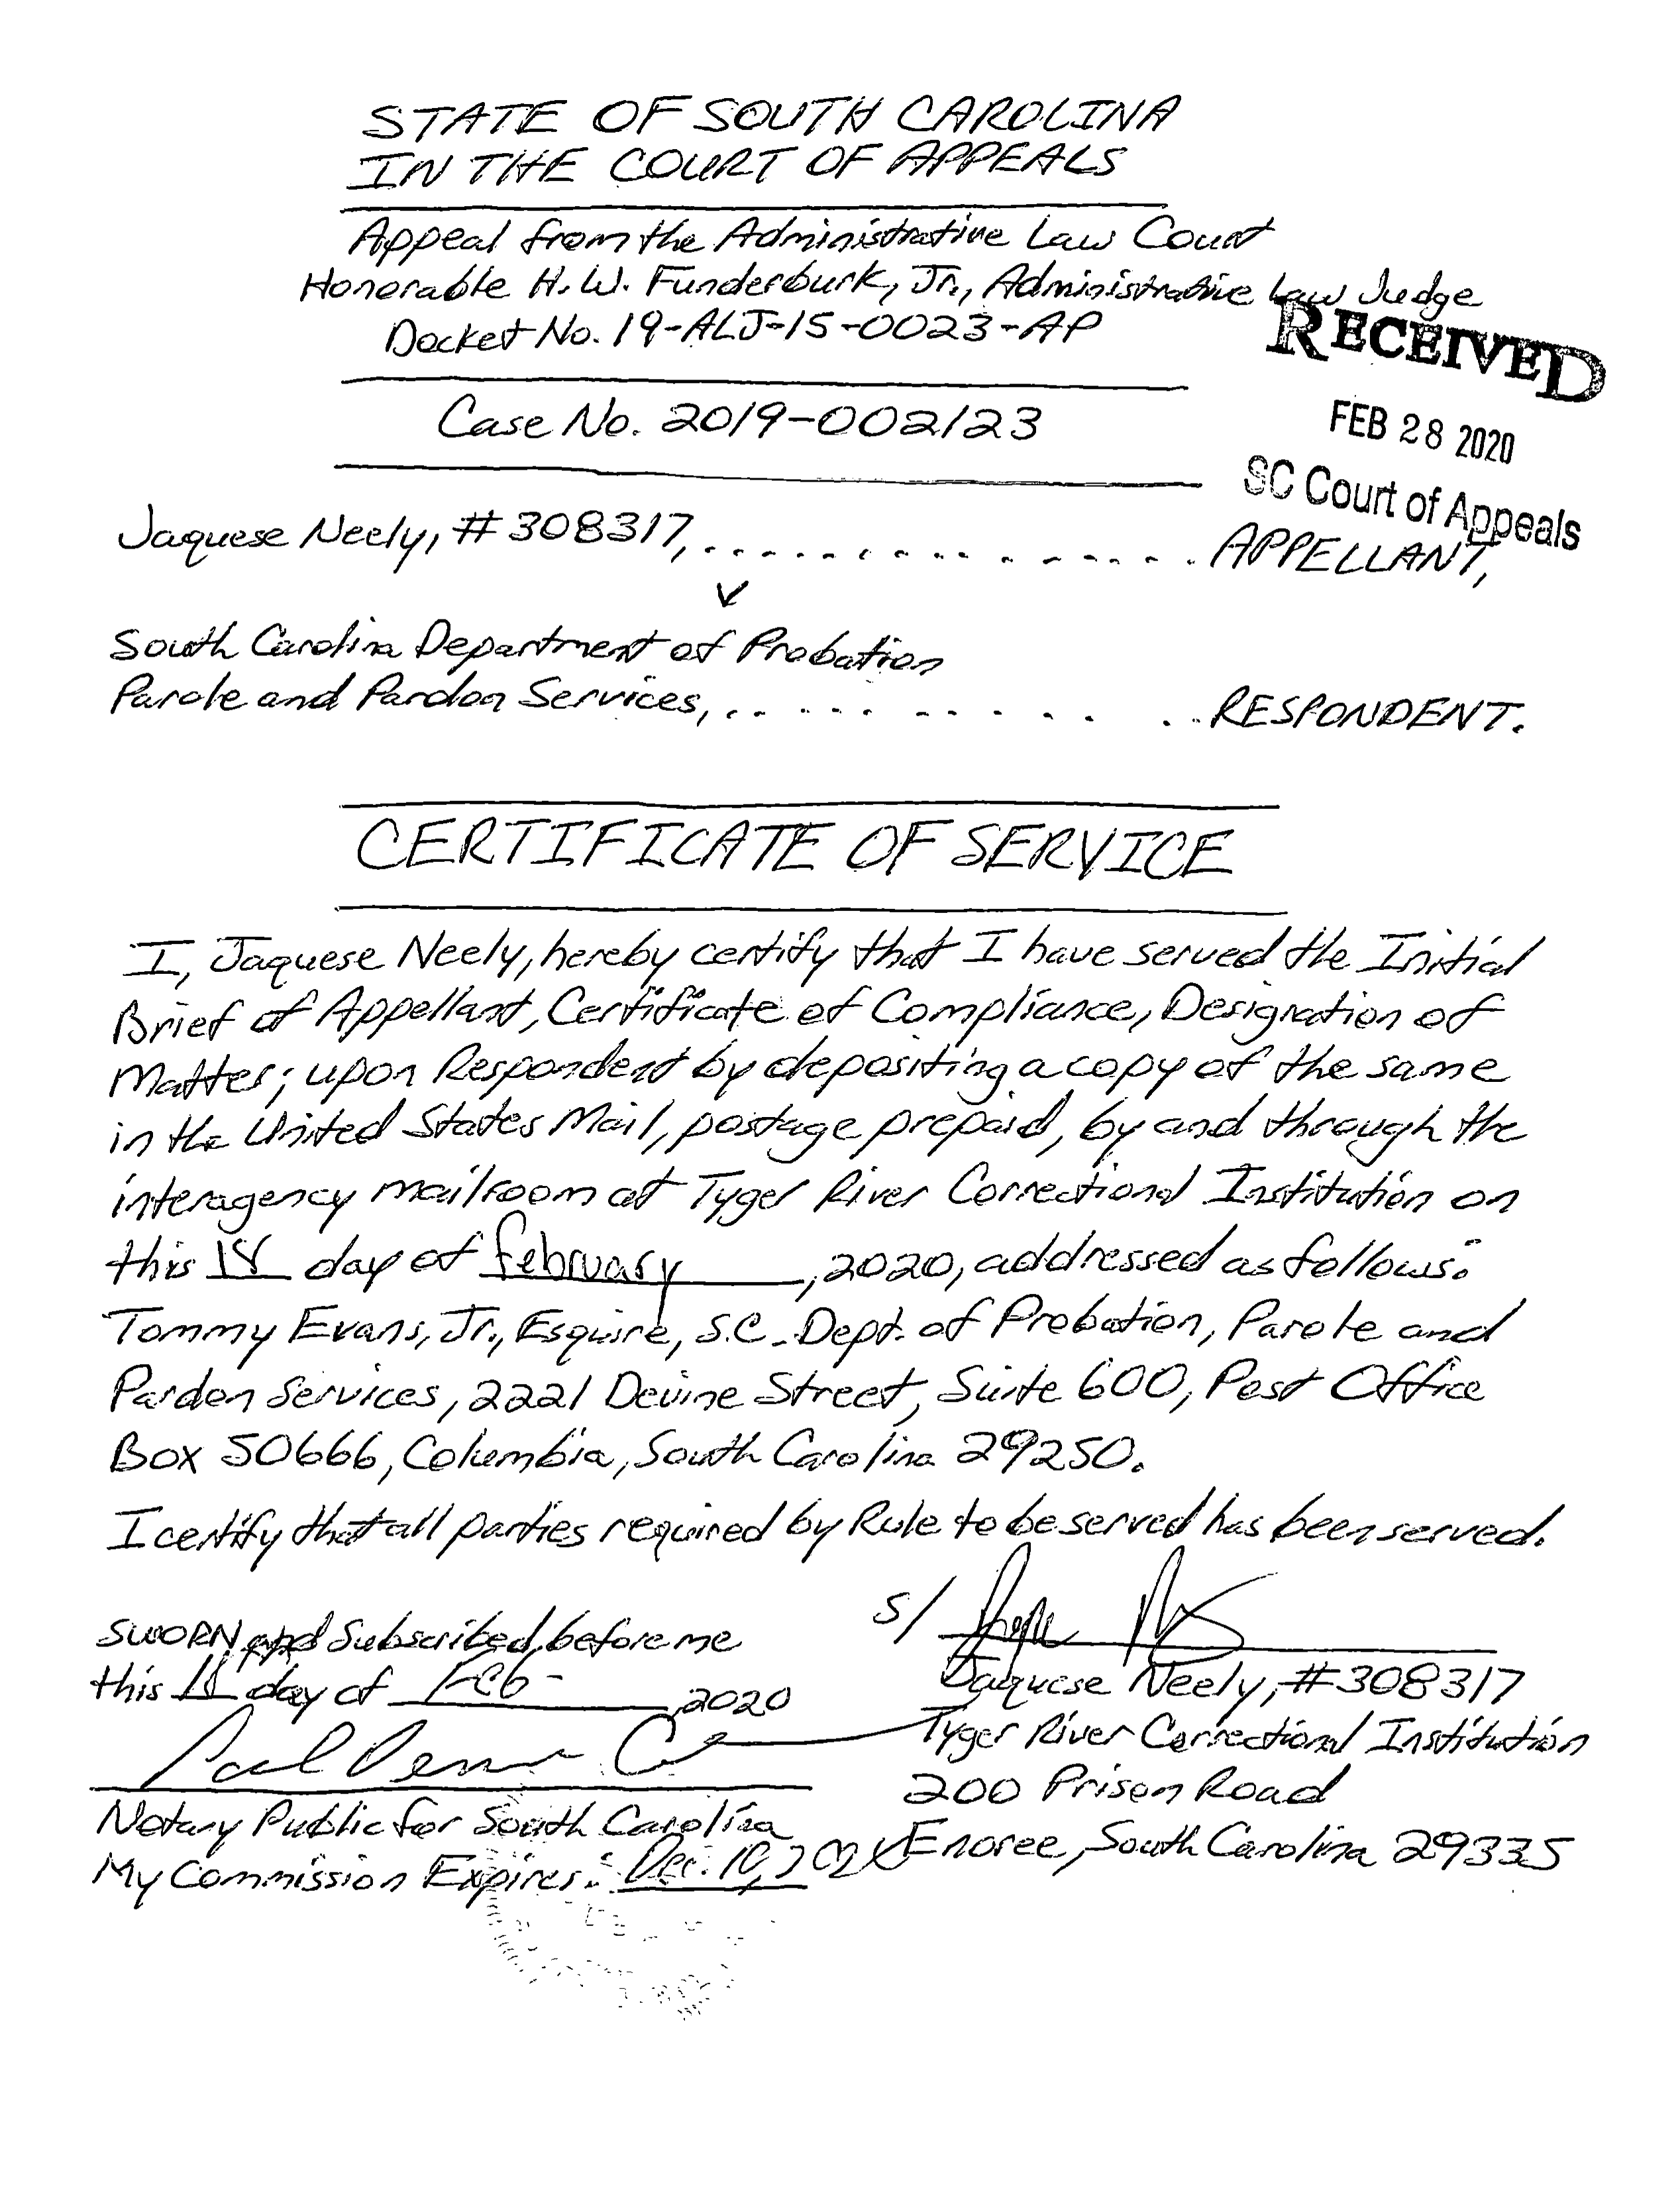 STATE OF SOUTH CAROLINA
IN THE COURT OF APPEALS
Appeal from the Administrative Law Court
Honorable H. W. Funderburk, Jr., Administrative Law Judge
Docket No. 19-ALJ-15-0023-AP
RECEIVED
Case No. 2019-002123
FEB 28 2020
SC Court of Appeals
Jaquese Neely, #308317, . . . . . . . . . . . . . . . . APPELLANT,
v
South Carolina Department of Probation
Parole and Pardon Services, . . . . . . . . . . . RESPONDENT.
CERTIFICATE OF SERVICE
I, Jaquese Neely, hereby certify that I have served the Initial
Brief of Appellant, Certificate of Compliance, Designation of
Matter; upon Respondent by depositing a copy of the same
in the United States Mail, postage prepaid, by and through the
interagency mailroom at Tyger River Correctional Institution on
this 18 day of february, 2020, addressed as follows:
Tommy Evans, Jr., Esquire, S.C. Dept. of Probation, Parole and
Pardon Services, 2221 Devine Street, Suite 600, Post Office
Box 50666, Columbia, South Carolina 29250.
I certify that all parties required by Rule to be served has been served.
SWORN and Subscribed before me
this day of Feb 2020
s/
Jaquese Neely, #308317
Tyger River Correctional Institution
200 Prison Road
Enoree, South Carolina 29335
Notary Public for South Carolina
My Commission Expires: Dec. 10,